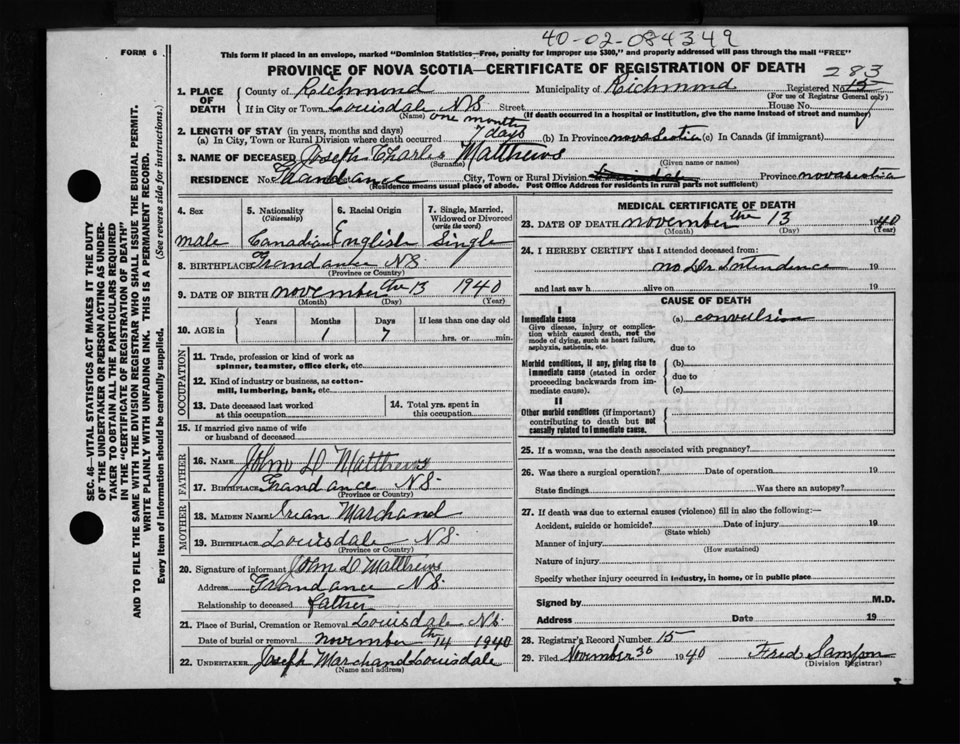 40-02-084349
FORM 6
This form if placed in an envelope, marked "Dominion Statistics—Free, penalty for improper use $300," and properly addressed will pass through the mail "FREE"
PROVINCE OF NOVA SCOTIA—CERTIFICATE OF REGISTRATION OF DEATH
283
1. PLACE OF DEATH
County of Richmond Municipality of Richmond Registered No. 15
(For use of Registrar General only)
If in City or Town Louisdale N S Street House No.
(Name) (If death occurred in a hospital or institution, give the name instead of street and number)
2. LENGTH OF STAY (in years, months and days) one month
(a) In City, Town or Rural Division where death occurred 7 days (b) In Province nova Scotia (c) In Canada (if immigrant)
3. NAME OF DECEASED Joseph Charlis Matthews
(Surname) (Given name or names)
RESIDENCE No. Grandance City, Town or Rural Division Province novascotia
(Residence means usual place of abode. Post Office Address for residents in rural parts not sufficient)
4. Sex
male
5. Nationality
(Citizenship)
Canadian
6. Racial Origin
English
7. Single, Married, Widowed or Divorced
(write the word)
Single
8. BIRTHPLACE N S.
(Province or Country)
9. DATE OF BIRTH november the 13 1940
(Month) (Day) (Year)
10. AGE in Years Months Days If less than one day old
1 7 hrs. or min.
OCCUPATION
11. Trade, profession or kind of work as
spinner, teamster, office clerk, etc.
12. Kind of industry or business, as cotton-
mill, lumbering, bank, etc.
13. Date deceased last worked
at this occupation
14. Total yrs. spent in
this occupation
15. If married give name of wife
or husband of deceased
FATHER
16. NAME John D Matthews
17. BIRTHPLACE Grandance N S.
(Province or Country)
MOTHER
18. MAIDEN NAME Marchand
19. BIRTHPLACE Louisdale N S.
(Province or Country)
20. Signature of informant John D Matthews
Address Grandance N S.
Relationship to deceased father
21. Place of Burial, Cremation or Removal Louisdale N S.
Date of burial or removal november th 14 1940
22. UNDERTAKER Joseph Marchand Louisdale
(Name and address)
MEDICAL CERTIFICATE OF DEATH
23. DATE OF DEATH november the 13 1940
(Month) (Day) (Year)
24. I HEREBY CERTIFY that I attended deceased from:
no Dr Intendence 19
and last saw h alive on 19
CAUSE OF DEATH
I
Immediate cause (a) convulsion
Give disease, injury or complica-
tion which caused death, not the
mode of dying, such as heart failure,
asphyxia, asthenia, etc.
due to
Morbid conditions, if any, giving rise to (b)
immediate cause (stated in order
proceeding backwards from im-
mediate cause).
due to
(c)
II
Other morbid conditions (if important)
contributing to death but not
causally related to immediate cause.
25. If a woman, was the death associated with pregnancy?
26. Was there a surgical operation? Date of operation 19
State findings Was there an autopsy?
27. If death was due to external causes (violence) fill in also the following:—
Accident, suicide or homicide? Date of injury 19
(State which)
Manner of injury
(How sustained)
Nature of injury
Specify whether injury occurred in industry, in home, or in public place
Signed by M.D.
Address Date 19
28. Registrar's Record Number 15
29. Filed November 30 1940 Fred Samson
(Division Registrar)
SEC. 46—VITAL STATISTICS ACT MAKES IT THE DUTY
OF THE UNDERTAKER OR PERSON ACTING AS UNDER-
TAKER TO OBTAIN ALL THE PARTICULARS REQUIRED
IN THE "CERTIFICATE OF REGISTRATION OF DEATH"
AND TO FILE THE SAME WITH THE DIVISION REGISTRAR WHO SHALL ISSUE THE BURIAL PERMIT.
WRITE PLAINLY WITH UNFADING INK. THIS IS A PERMANENT RECORD.
Every item of information should be carefully supplied. (See reverse side for instructions.)